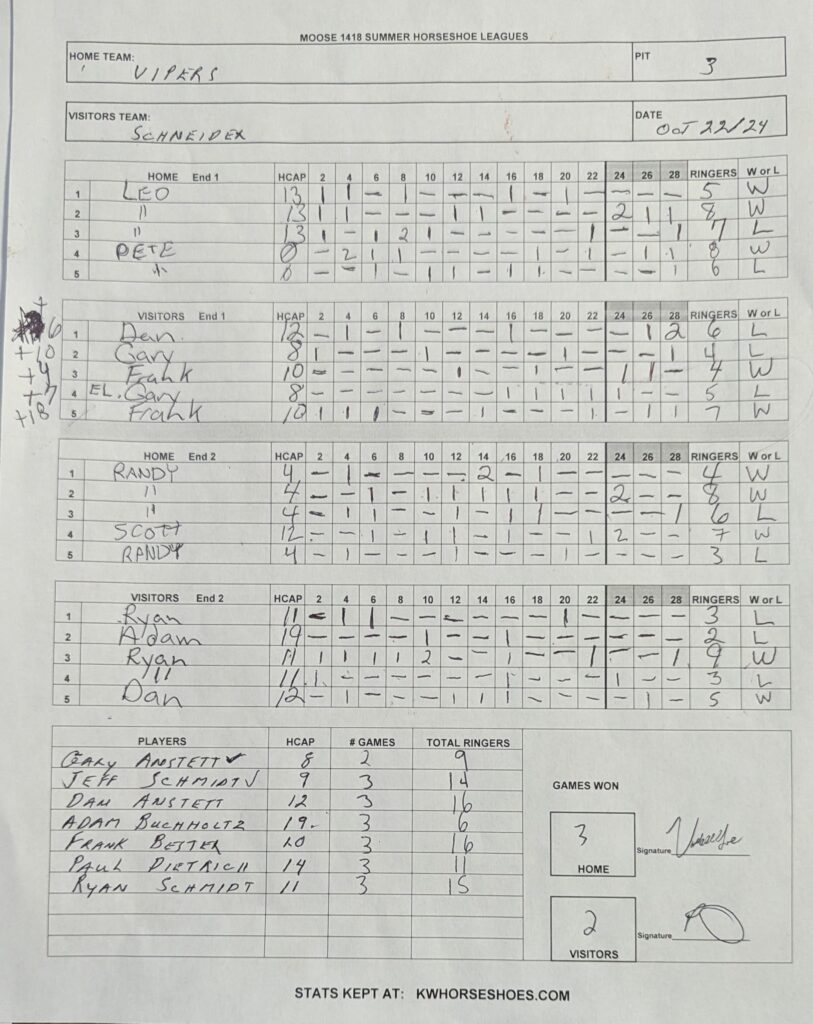 MOOSE 1418 SUMMER HORSESHOE LEAGUES
HOME TEAM: VIPERS PIT 3
VISITORS TEAM: SCHNEIDER DATE OCT 22/24
HOME End 1 HCAP 2 4 6 8 10 12 14 16 18 20 22 24 26 28 RINGERS W or L
1 LEO 13 1 1 - 1 - - - 1 - 1 - - - - 5 W
2 " 13 1 1 - - - 1 1 - - - - 2 1 1 8 W
3 " 13 1 - 1 2 1 - - - - - 1 - - 1 7 L
4 PETE 0 - 2 1 1 - - - - 1 - 1 - 1 1 8 W
5 " 0 - - 1 - 1 1 - 1 1 - - - - 1 6 L
VISITORS End 1 HCAP 2 4 6 8 10 12 14 16 18 20 22 24 26 28 RINGERS W or L
+6 1 Dan 12 - 1 - 1 - - - 1 - - - - 1 2 6 L
+10 2 Gary 8 1 - - - 1 - - - - 1 - - - 1 4 L
+4 3 Frank 10 - - - - - 1 - - 1 - - 1 1 - 4 W
+7 4 EL. Gary 8 - - - - - - - 1 1 1 1 1 - - 5 L
+18 5 Frank 10 1 1 1 - - - 1 - - - 1 - 1 1 7 W
HOME End 2 HCAP 2 4 6 8 10 12 14 16 18 20 22 24 26 28 RINGERS W or L
1 RANDY 4 - 1 - - - - 2 - 1 - - - - - 4 W
2 " 4 - - 1 - 1 1 1 1 1 - - 2 - - 8 W
3 " 4 - 1 1 - - 1 - 1 1 - - - - 1 6 L
4 SCOTT 12 - - 1 - 1 1 - 1 - - 1 2 - - 7 W
5 RANDY 4 - 1 - - - 1 - - - 1 - - - - 3 L
VISITORS End 2 HCAP 2 4 6 8 10 12 14 16 18 20 22 24 26 28 RINGERS W or L
1 Ryan 11 - 1 1 - - - - - - 1 - - - - 3 L
2 Adam 19 - - - - 1 - - 1 - - - - - - 2 L
3 Ryan 11 1 1 1 1 2 - - 1 - - 1 - - 1 9 W
4 " 11 1 - - - - - - 1 - - - 1 - - 3 L
5 Dan 12 - 1 - - - 1 1 1 - - - - 1 - 5 W
PLAYERS HCAP # GAMES TOTAL RINGERS
GARY ANSTETT ✓ 8 2 9
JEFF SCHMIDT ✓ 9 3 14
DAN ANSTETT 12 3 16
ADAM BUCHHOLTZ 19. 3 6
FRANK BETTER 10 3 16
PAUL DIETRICH 14 3 11
RYAN SCHMIDT 11 3 15
GAMES WON
3 HOME Signature
2 VISITORS Signature
STATS KEPT AT: KWHORSESHOES.COM